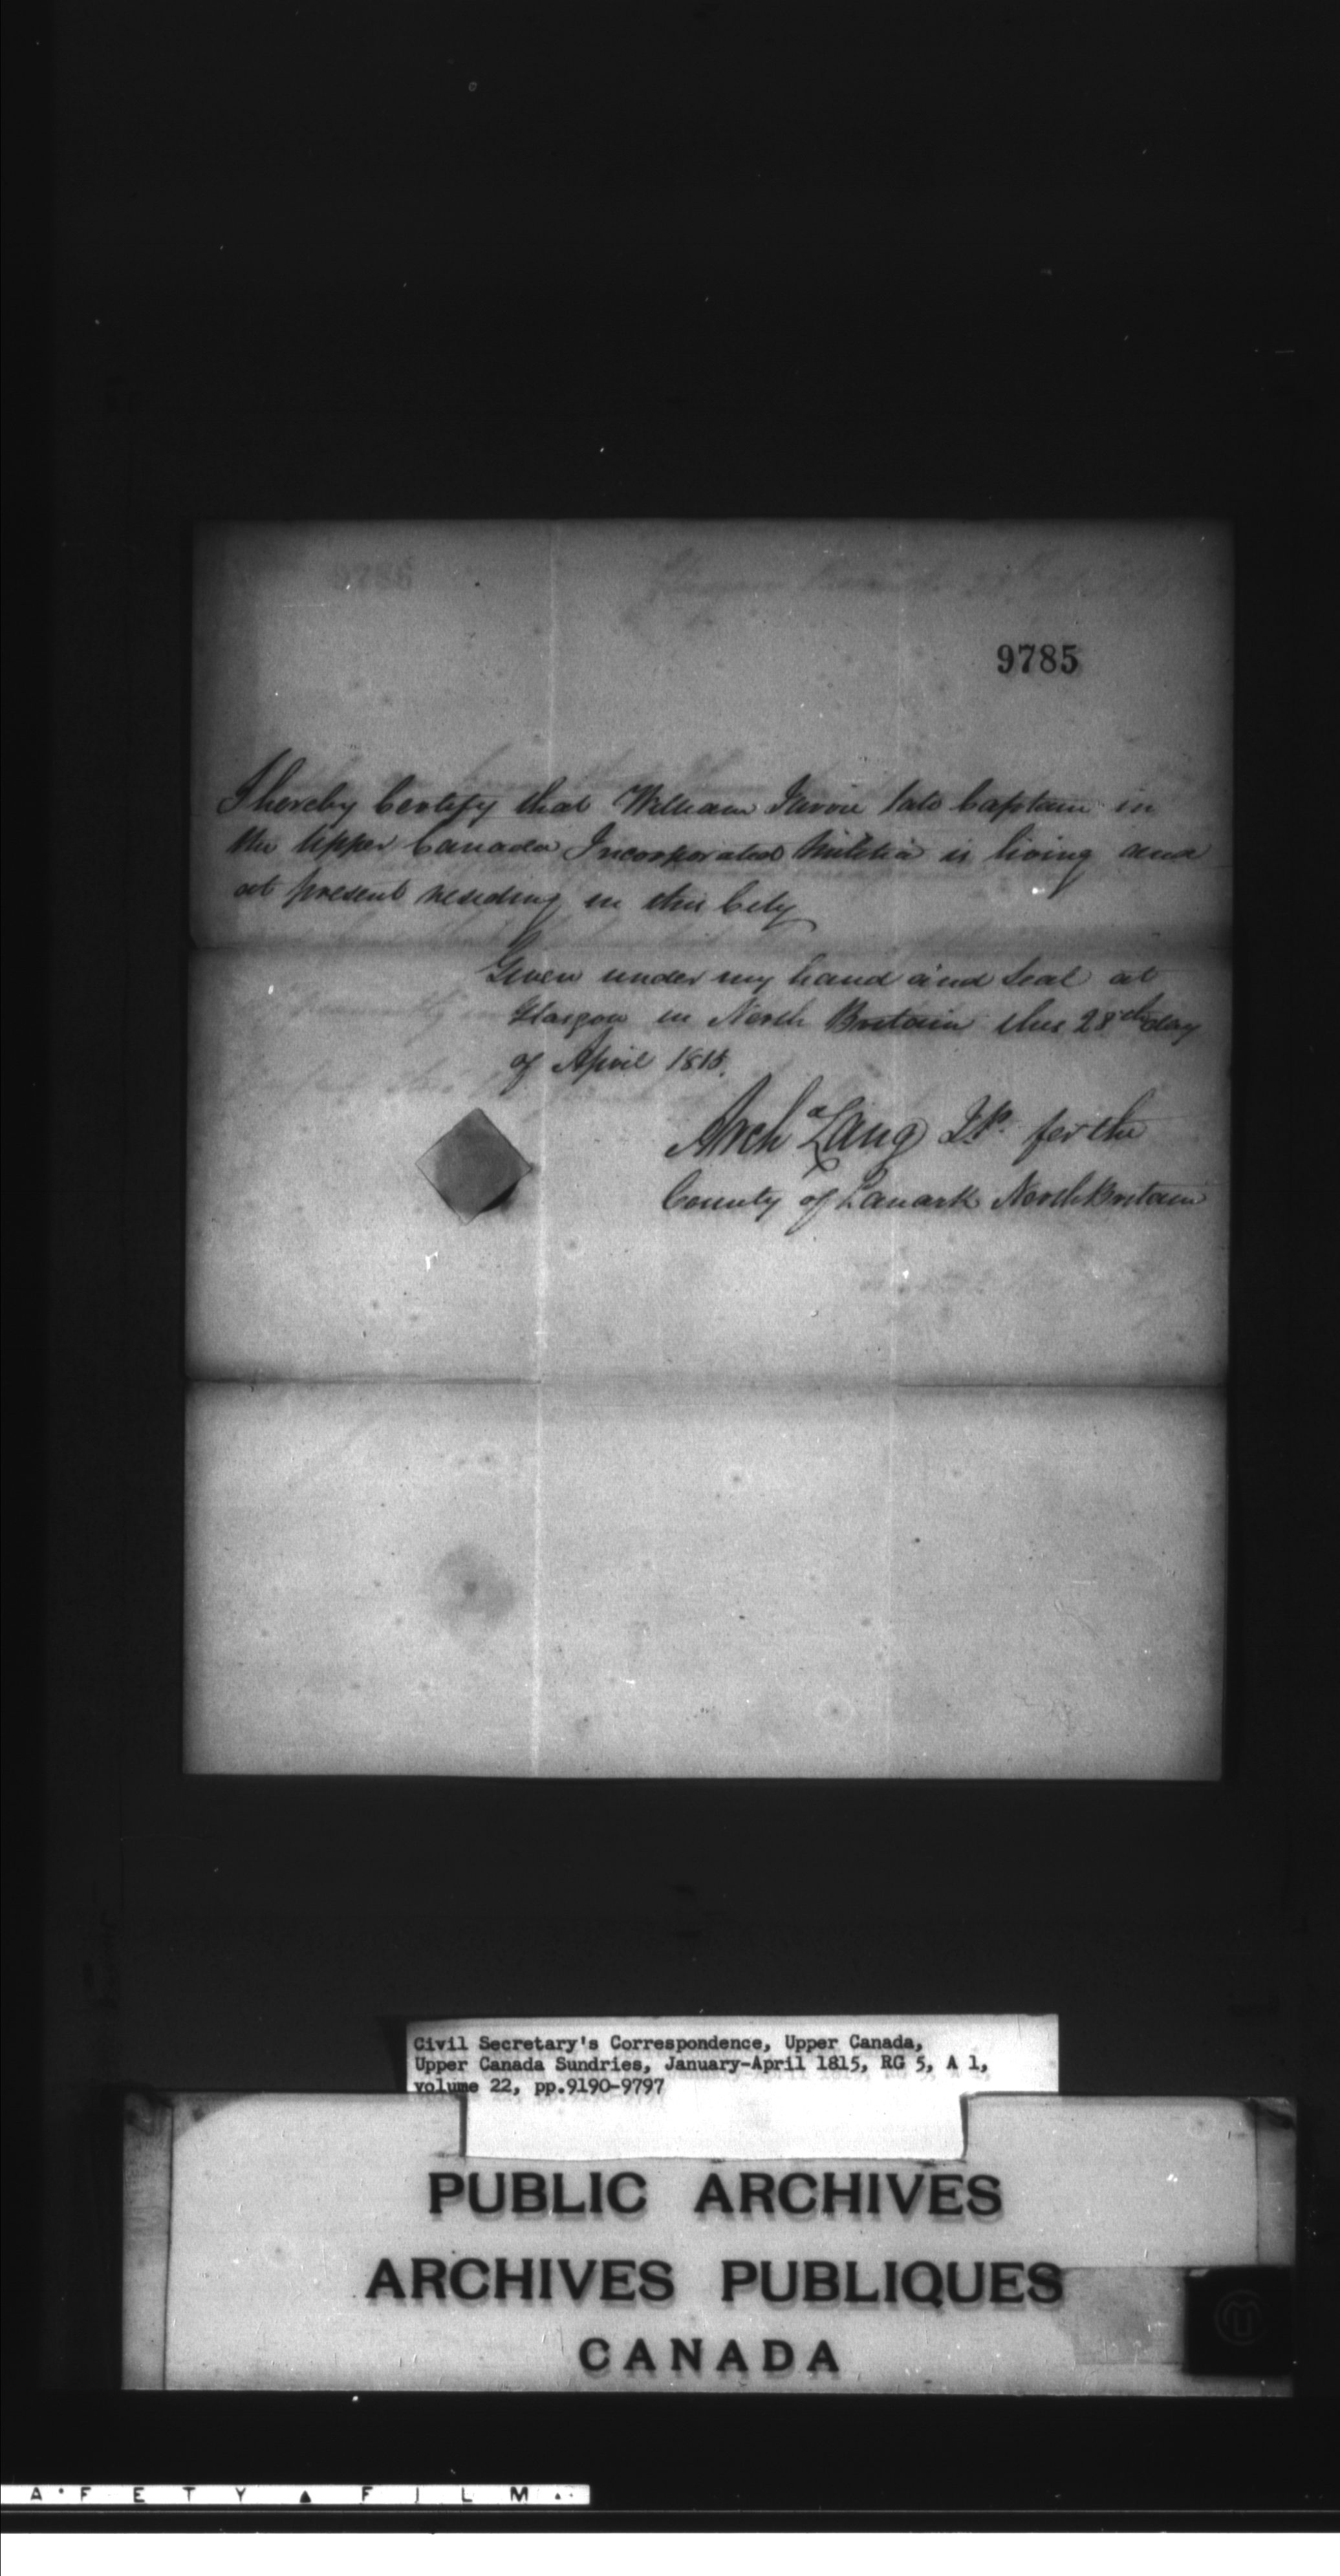 9785
I hereby Certify that William Jarvie late Captain in
the Upper Canada Incorporated Militia is living and
at present residing in this City
Given under my hand and Seal at
Glasgow in North Britain this 28th day
of April 1815.
Archd Lang J.P. for the
County of Lanark North Britain
Civil Secretary's Correspondence, Upper Canada,
Upper Canada Sundries, January-April 1815, RG 5, A 1,
volume 22, pp.9190-9797
PUBLIC ARCHIVES
ARCHIVES PUBLIQUES
CANADA
A F E T Y ▲ F I L M